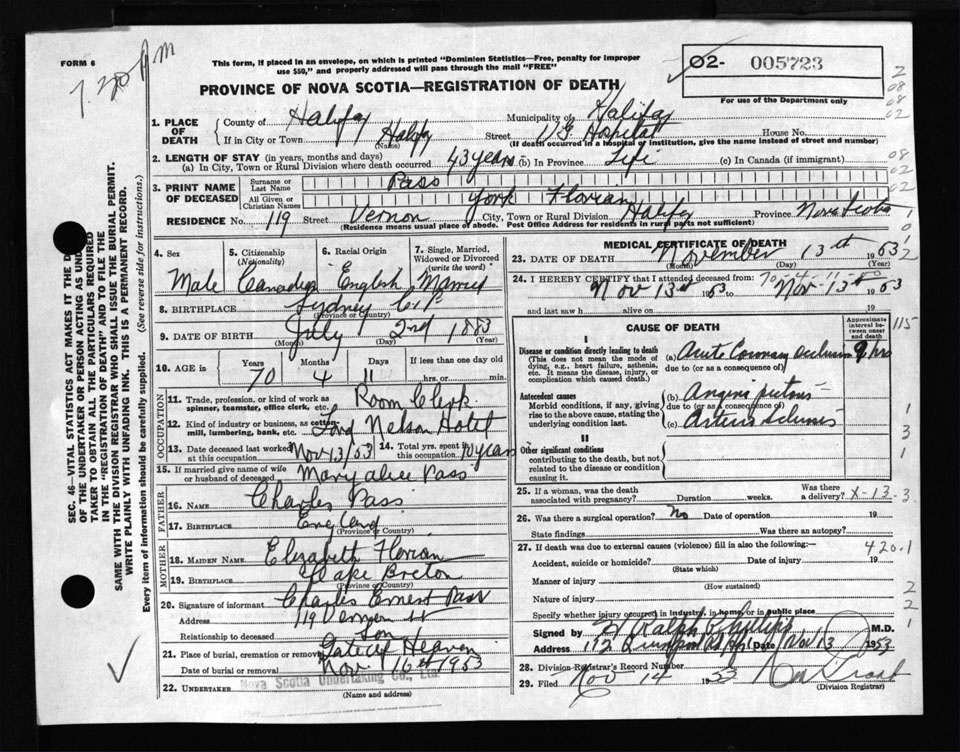 FORM 6
7.20 P M
This form, if placed in an envelope, on which is printed "Dominion Statistics—Free, penalty for improper
use $50," and properly addressed will pass through the mail "FREE"
02- 005723
For use of the Department only
PROVINCE OF NOVA SCOTIA—REGISTRATION OF DEATH
1. PLACE OF DEATH County of Halifax Municipality of Halifax
If in City or Town Halifax (Name) Street V.G. Hospital House No.
(If death occurred in a hospital or institution, give the name instead of street and number)
2. LENGTH OF STAY (in years, months and days)
(a) In City, Town or Rural Division where death occurred 43 years (b) In Province Life (c) In Canada (if immigrant)
3. PRINT NAME OF DECEASED Surname or Last Name Pass
All Given or Christian Names York Florian
RESIDENCE No. 119 Street Vernon City, Town or Rural Division Halifax Province Nova Scotia
(Residence means usual place of abode. Post Office Address for residents in rural parts not sufficient)
4. Sex Male
5. Citizenship (Nationality) Canadian
6. Racial Origin English
7. Single, Married, Widowed or Divorced (write the word) Married
8. BIRTHPLACE Sydney C.B. (Province or Country)
9. DATE OF BIRTH July 2nd 1883
(Month) (Day) (Year)
10. AGE in Years 70 Months 4 Days 11 If less than one day old hrs. or min.
OCCUPATION
11. Trade, profession, or kind of work as spinner, teamster, office clerk, etc. Room Clerk
12. Kind of industry or business, as cotton-mill, lumbering, bank, etc. Lord Nelson Hotel
13. Date deceased last worked at this occupation Nov 13/53
14. Total yrs. spent in this occupation 10 years
15. If married give name of wife or husband of deceased Mary Alice Pass
FATHER
16. NAME Charles Pass
17. BIRTHPLACE England (Province or Country)
MOTHER
18. MAIDEN NAME Elizabeth Florian
19. BIRTHPLACE Cape Breton (Province or Country)
20. Signature of informant Charles Ernest Pass
Address 119 Vernon St
Relationship to deceased Son
21. Place of burial, cremation or removal Gate of Heaven
Date of burial or removal Nov. 16th 1953
22. UNDERTAKER Nova Scotia Undertaking Co., Ltd.
(Name and address)
SEC. 46—VITAL STATISTICS ACT MAKES IT THE
OF THE UNDERTAKER OR PERSON ACTING AS
TAKER TO OBTAIN ALL THE PARTICULARS REQUIRED
IN THE "REGISTRATION OF DEATH" AND TO FILE THE
SAME WITH THE DIVISION REGISTRAR WHO SHALL ISSUE THE BURIAL PERMIT.
WRITE PLAINLY WITH UNFADING INK. THIS IS A PERMANENT RECORD.
Every item of information should be carefully supplied. (See reverse side for instructions.)
MEDICAL CERTIFICATE OF DEATH
23. DATE OF DEATH November 13th 1953
(Month) (Day) (Year)
24. I HEREBY CERTIFY that I attended deceased from:
Nov 13th 1953 to Nov-13th 1953
and last saw h alive on 19
CAUSE OF DEATH
Approximate interval between onset and death
I
Disease or condition directly leading to death
(This does not mean the mode of dying, e.g., heart failure, asthenia, etc. It means the disease, injury, or complication which caused death.)
(a) Acute Coronary occlusion 9 hrs
due to (or as a consequence of)
Antecedent causes
Morbid conditions, if any, giving rise to the above cause, stating the underlying condition last.
(b) Angina pectoris
due to (or as a consequence of)
(c) Arterio Sclerosis
II
Other significant conditions
contributing to the death, but not related to the disease or condition causing it.
25. If a woman, was the death associated with pregnancy? Duration weeks. Was there a delivery? X-13-3
26. Was there a surgical operation? No Date of operation 19
State findings Was there an autopsy?
27. If death was due to external causes (violence) fill in also the following:— 420.1
Accident, suicide or homicide? (State which) Date of injury 19
Manner of injury (How sustained)
Nature of injury
Specify whether injury occurred in industry, in home, or in public place
Signed by Ralph Phillips M.D.
Address Date Nov 13 1953
28. Division Registrar's Record Number
29. Filed Nov 14 1953
(Division Registrar)
115